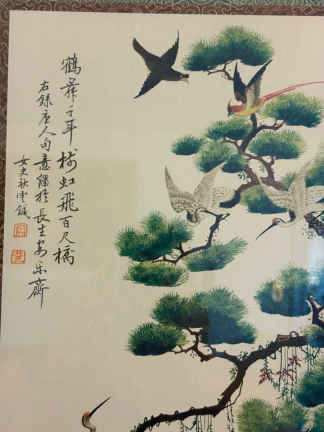 鶴舞千年樹虹飛百尺橋
右錄唐人句意繪於長生安樂齋
女史秋雪儀